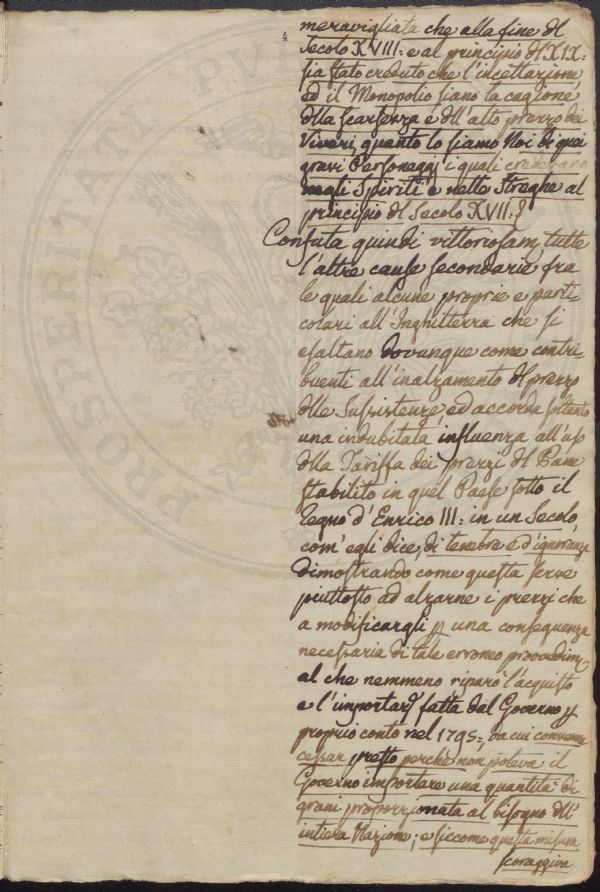 meravigliata che alla fine del
Secolo XVIII: e al principio del XIX:
sia stato creduto che l'incettazione
ed il Monopolio siano la cagione
della scarsezza e dell'alto prezzo dei
Viveri, quanto lo siamo Noi di quei
gravi Personaggi i quali credevano
negli Spiriti e nelle Streghe al
principio del Secolo XVII:?
Confuta quindi vittoriosam.e tutte
l'altre cause secondarie fra
le quali alcune proprie e parti
colari all'Inghilterra che si
esaltano dovunque come contri
buenti all'inalzamento del prezzo
delle Sussistenze, ed accorda soltanto
una indubitata influenza all'uso
della Tariffa dei prezzi del Pane
stabilito in quel Paese sotto il
Regno d'Enrico III: in un Secolo,
com'egli dice, di tenebre e d'ignoranza
dimostrando come questa serve
piuttosto ad alzarne i prezzi che
a modificargli p una conseguenza
necessaria di tale erroneo provvedim.
al che nemmeno riparò l'acquisto
e l'importaz. fatta dal Governo p
proprio conto nel 1795:, da cui convenne
cessar presto perchè non poteva il
Governo importare una quantità di
grani proporzionata al bisogno dell'
intiera Nazione; e siccome questa misura
scoraggiva
PROSPERITATI PVBL